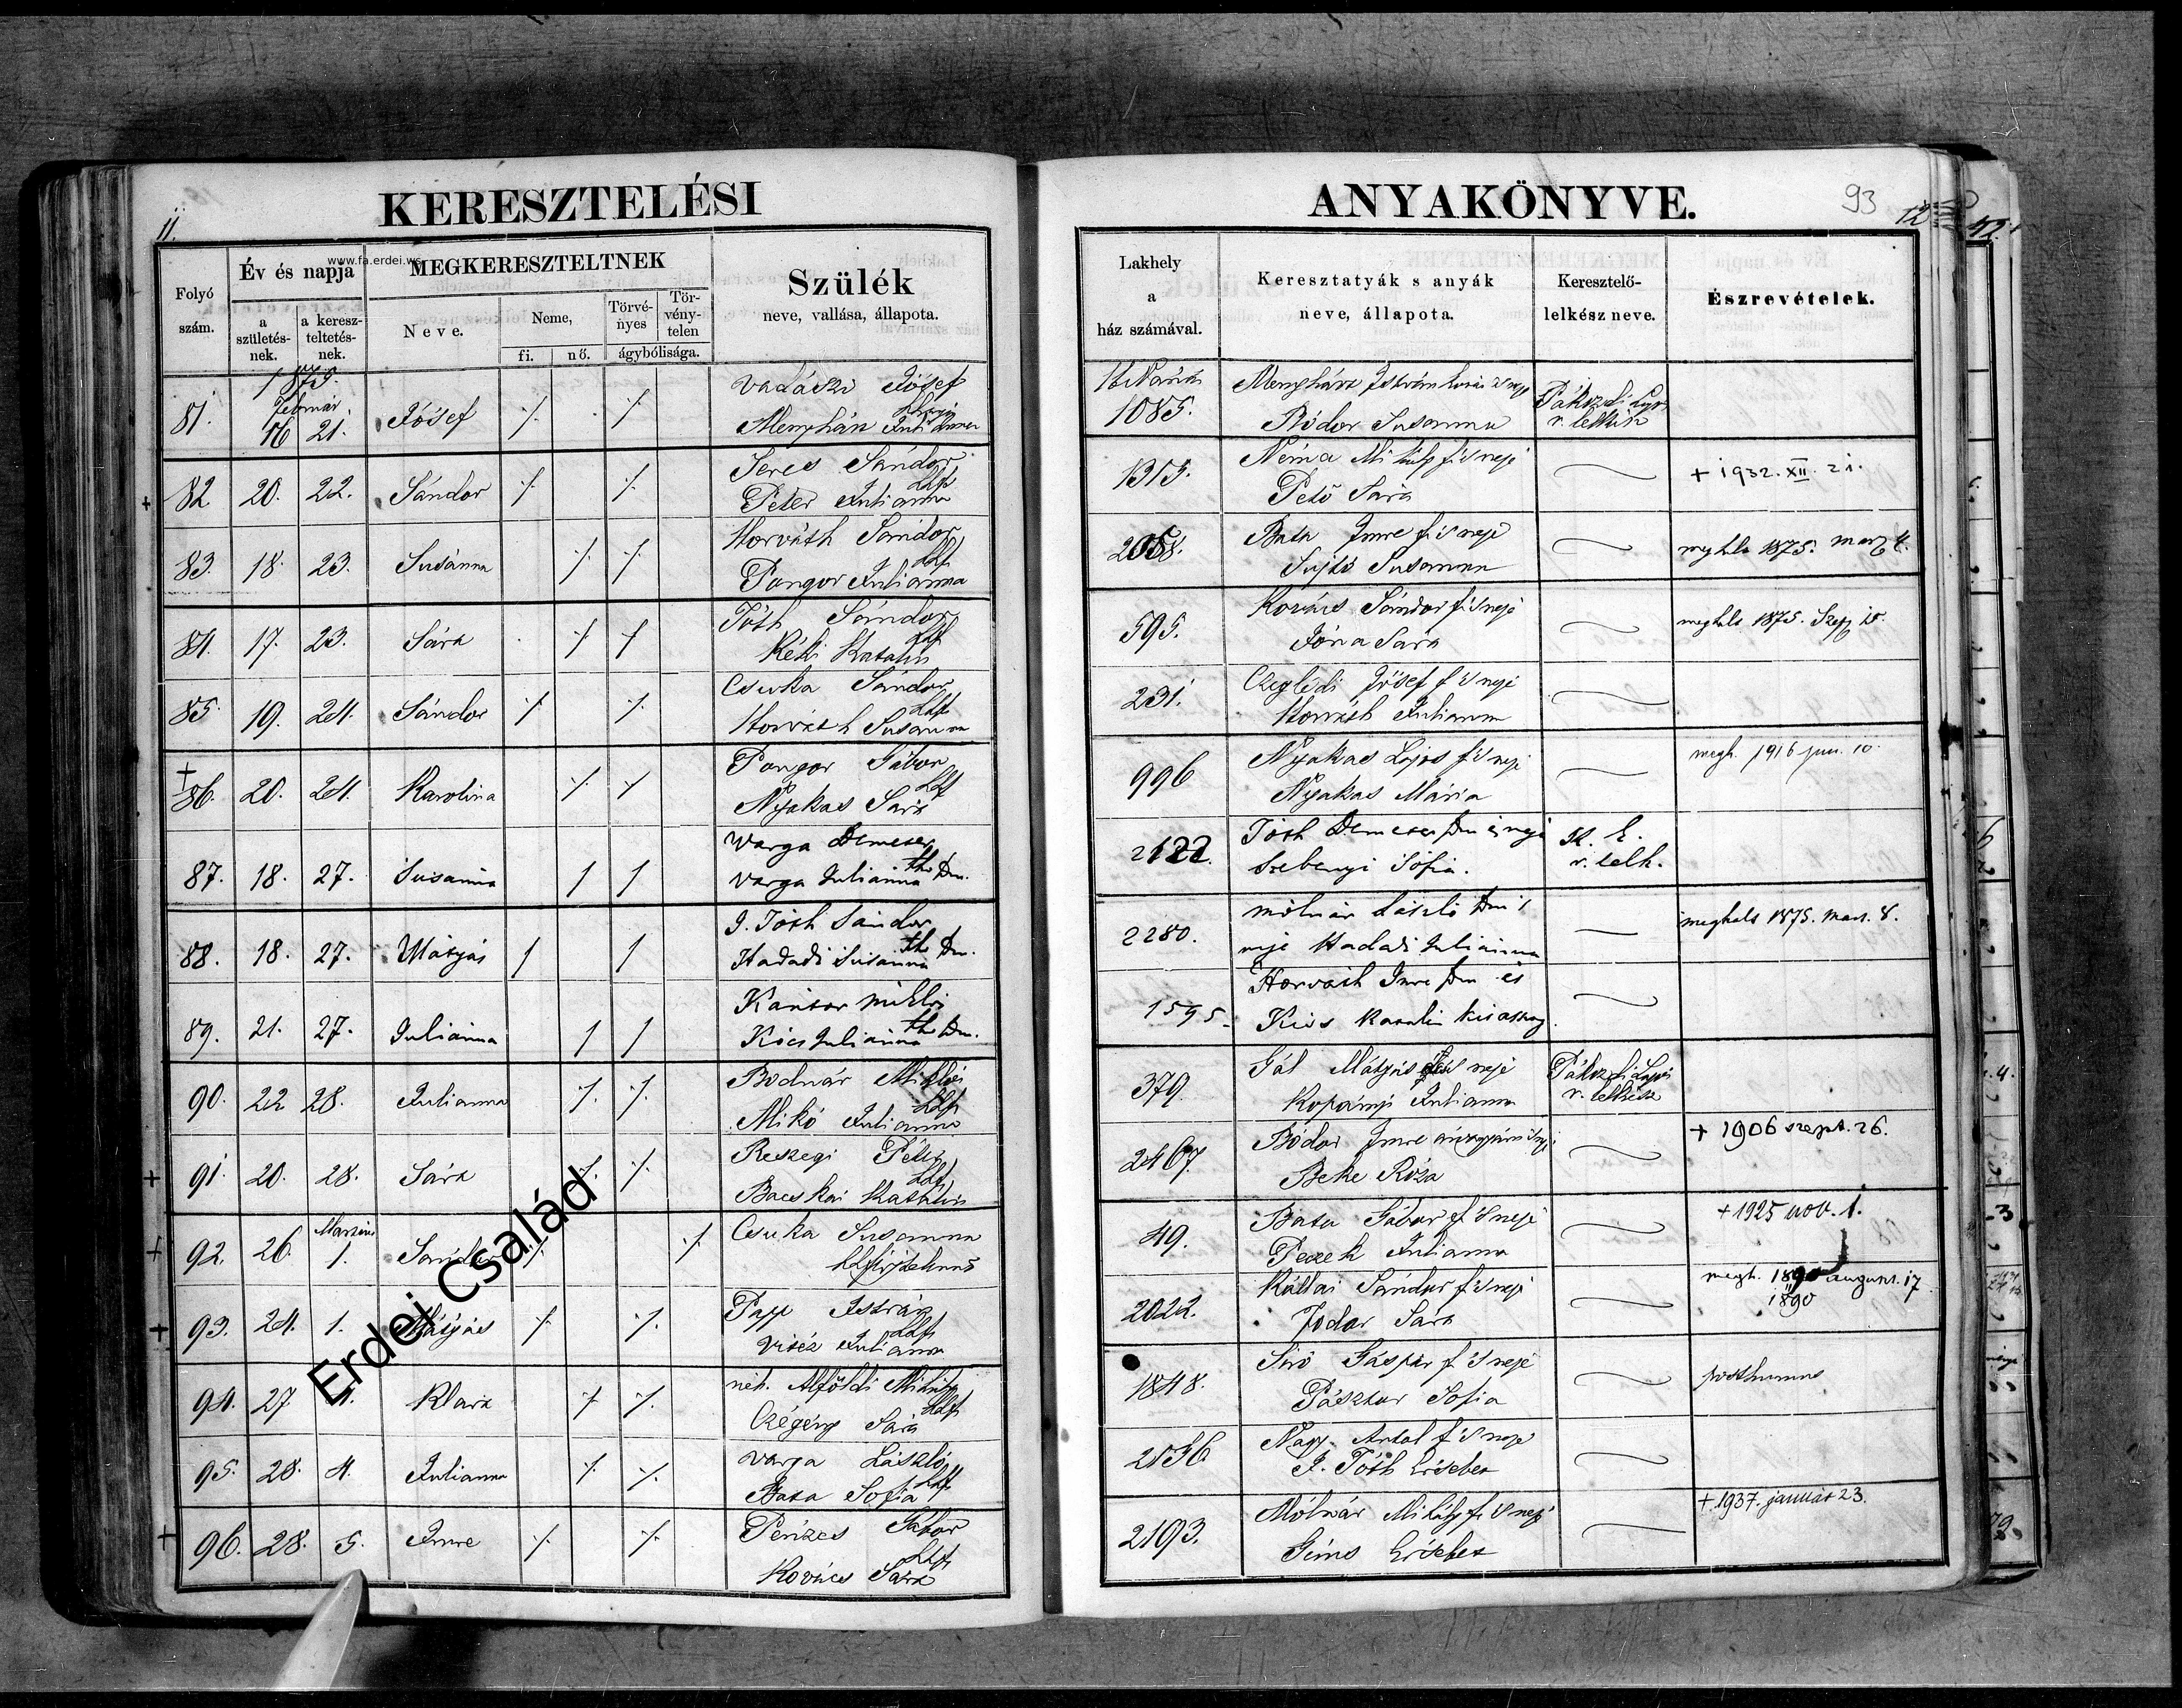 KERESZTELÉSI
ANYAKÖNYVE.
93
11.
12
www.fa.erdei.ws
Folyó
szám.
Év és napja
a
születés-
nek.
a keresz-
teltetés-
nek.
MEGKERESZTELTNEK
Neve.
Neme,
fi.
nő.
Törvé-
nyes
Tör-
vény-
telen
ágybólisága.
Szülék
neve, vallása, állapota.
Lakhely
a
ház számával.
Keresztatyák s anyák
neve, állapota.
Keresztelő-
lelkész neve.
Észrevételek.
1875.
Február
81. 16 21. József
Vadászi József
1085.
Bódor Susanna
Pákozdi
r. lelkész
82 20. 22. Sándor
Seres Sándor
Péter Julianna
1315.
Néma Mihály f. s neje
Pető Sára
+ 1932. XII. 21.
83. 18. 23. Susánna
Horváth Sándor
Pongor Julianna
Bata Imre f. s neje
Sujtó Susanna
1875. marz
84. 17. 23. Sára
Tóth Sándor
Réti Katalin
595.
Kovács Sándor f. s neje
Jóna Sára
meghalt 1875. Szep 10.
85. 19. 24. Sándor
Csuka Sándor
Horváth Susanna
231.
Czeglédi József f. s neje
Horváth Julianna
86. 20. 24. Karolina
Pongor Gábor
Nyakas Sára
996
Nyakas Lajos f. s neje
Nyakas Mária
megh. 1916 jun. 10.
87. 18. 27. Susanna
Varga Demeter
Varga Julianna
2122.
Tóth Demeter
Szebenyi Sófia.
r. lelk.
88. 18. 27. Mátyás
J. Tóth Sándor
Hadadi Susanna
2280.
Molnár László
neje Hadadi Julianna
meghalt 1875. Mart. 8.
89. 21. 27. Julianna
Kántor Miklós
Kócs Julianna
1595.
Horváth Imre
Kiss Katalin
90. 22 28. Julianna
Bodnár Miklós
Mikó Julianna
379.
Gál Mátyás s neje
Kopányi Julianna
Pákozdi Lajos
r. lelkész
91. 20. 28. Sára
Reszegi Péter
Bacskai Katalin
2467
Bódor Imre
Beke Róza
+ 1906 szept. 26.
Martius
92. 26. 1. Sándor
Csuka Susanna
49.
Bata Gábor f. s neje
Julianna
+ 1925 nov. 1.
93. 24. 1. Mátyás
Papp István
Vitéz Julianna
2022.
Kállai Sándor f. s neje
Fodor Sára
megh. august. 17
1890
94. 27. Klára
néh. Alföldi Mihály
Czégény Sára
1848.
Siró Gáspár f. s neje
Pásztor Sofia
posthumus
95. 28. 4. Julianna
Varga László
Bata Sofia
2136
Nagy Antal f. s neje
J. Tóth Erzsébet
96. 28. 5. Imre
Pénzes Gábor
Kovács Sára
2193.
Mólnár Mihály f. s neje
Gims Erzsébet
+ 1937. január 23.
Erdei Család